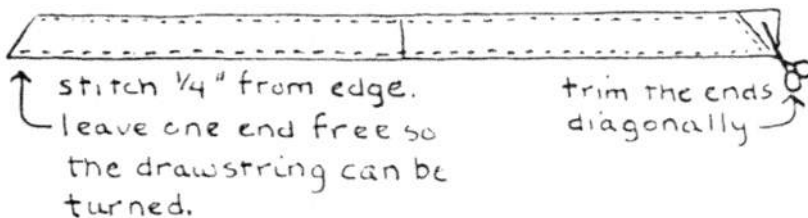 stitch 1/4" from edge.
leave one end free so
the drawstring can be
turned.
trim the ends
diagonally